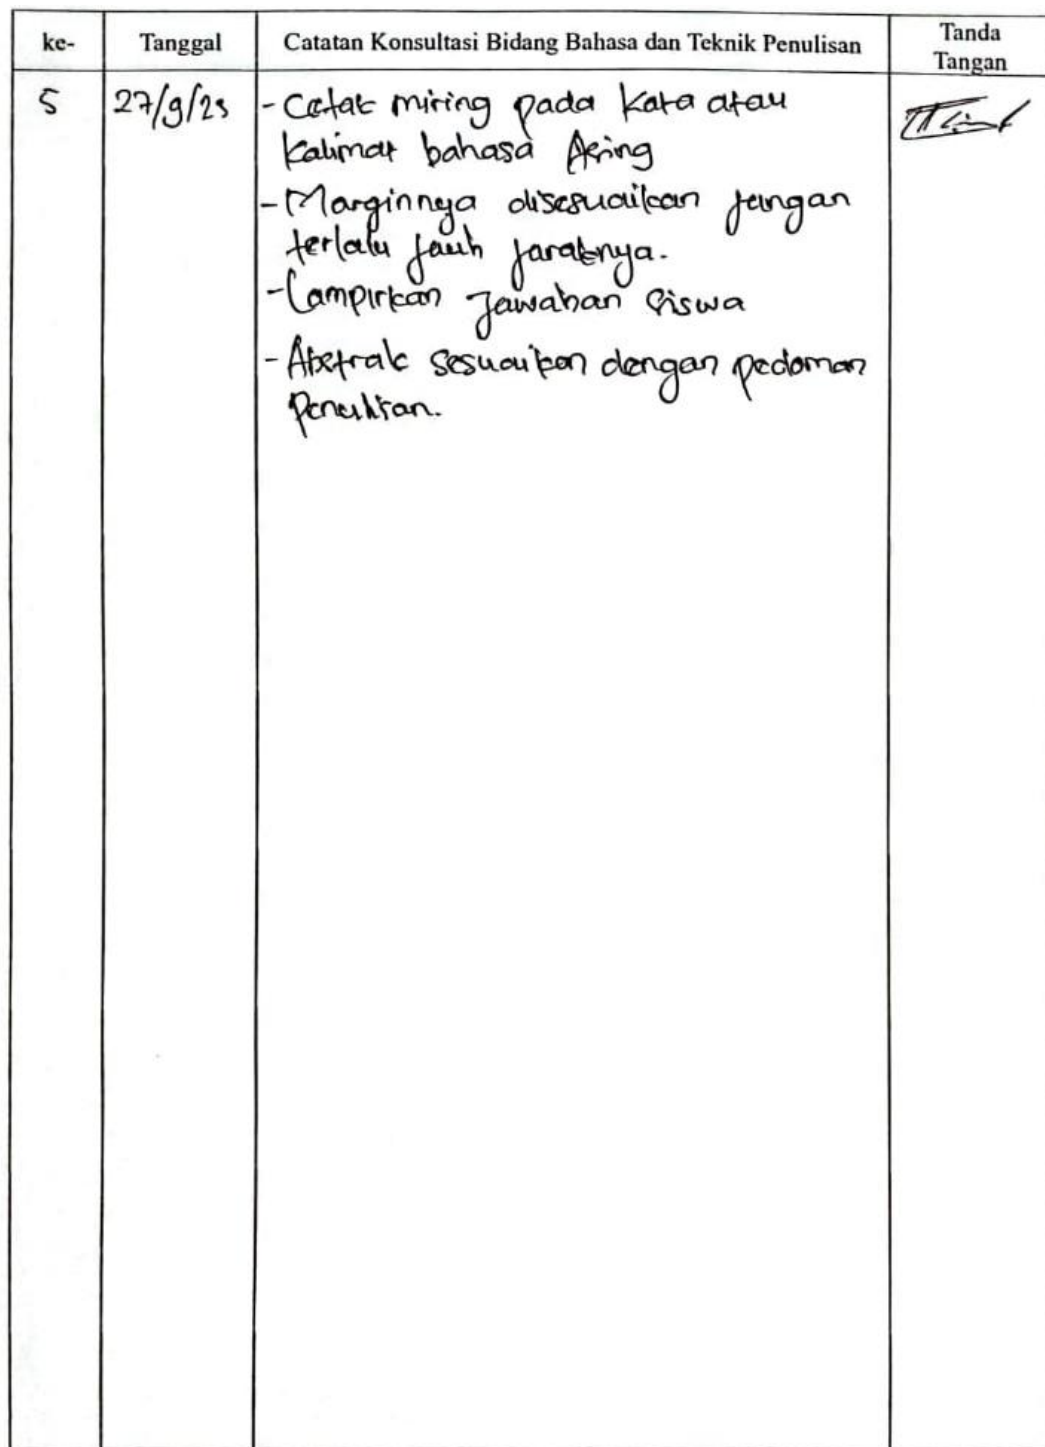 ke- Tanggal Catatan Konsultasi Bidang Bahasa dan Teknik Penulisan Tanda Tangan
5 27/9/23 - Cetak miring pada kata atau
kalimat bahasa Asing
- Marginnya disesuaikan jangan
terlalu jauh jaraknya.
- Lampirkan Jawaban Siswa
- Abstrak sesuaikan dengan pedoman
Penulisan.